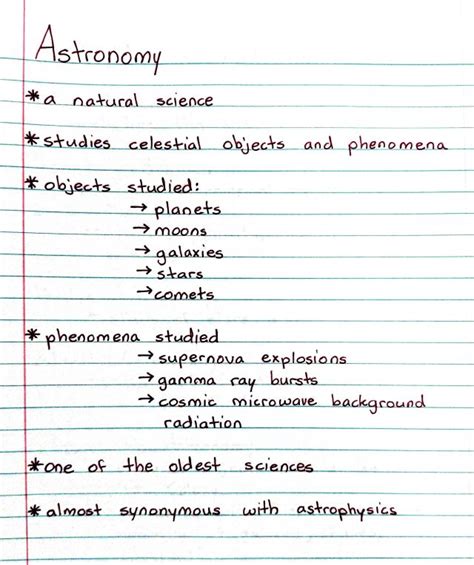 Astronomy
* a natural science
* studies celestial objects and phenomena
* objects studied:
→ planets
→ moons
→ galaxies
→ stars
→ comets
* phenomena studied
→ supernova explosions
→ gamma ray bursts
→ cosmic microwave background
radiation
* one of the oldest sciences
* almost synonymous with astrophysics